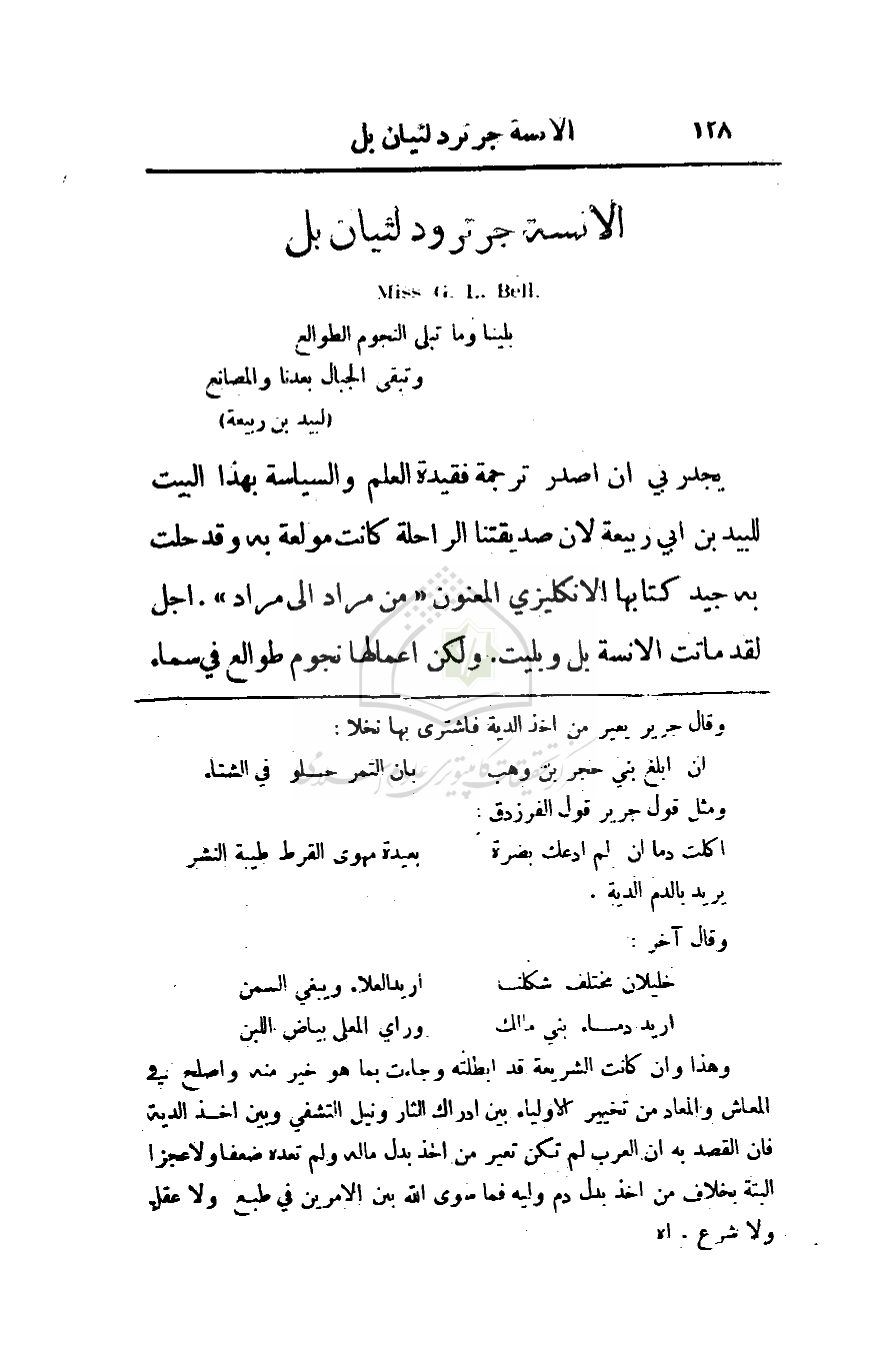 ١٢٨ الانسة جرترد لثيان بل
الانسة جرترود لثيان بل
Miss G. L. Bell.
بلينا وما تبلى النجوم الطوالع
وتبقى الجبال بعدنا والمصانع
(لبيد بن ربيعة)
يجدر بي ان اصدر ترجمة فقيدة العلم والسياسة بهذا البيت
للبيد بن ابي ربيعة لان صديقتنا الراحلة كانت مولعة به وقد حلت
به جيد كتابها الانكليزي المعنون «من مراد الى مراد» . اجل
لقد ماتت الانسة بل وبليت. ولكن اعمالها نجوم طوالع في سماء
وقال جرير يعير من اخذ الدية فاشترى بها نخلا :
ان ابلغ بني حجر بن وهب بان التمر حلو في الشتاء
ومثل قول جرير قول الفرزدق :
اكلت دما ان لم ادعك بضرة بعيدة مهوى القرط طيبة النشر
يريد بالدم الدية .
وقال آخر :
خليلان مختلف شكلنا اريد العلاء ويبغي السمن
اريد دماء بني مالك وراي المعلى بياض اللبن
وهذا وان كانت الشريعة قد ابطلته وجاءت بما هو خير منه واصلح في
المعاش والمعاد من تخيير الاولياء بين ادراك الثار ونيل التشفي وبين اخذ الدية
فان القصد به ان العرب لم تكن تعير من اخذ بدل ماله ولم تعده ضعفا ولا عجزا
البتة بخلاف من اخذ بدل دم وليه فما سوى الله بين الامرين في طبع ولا عقل
ولا شرع . اه